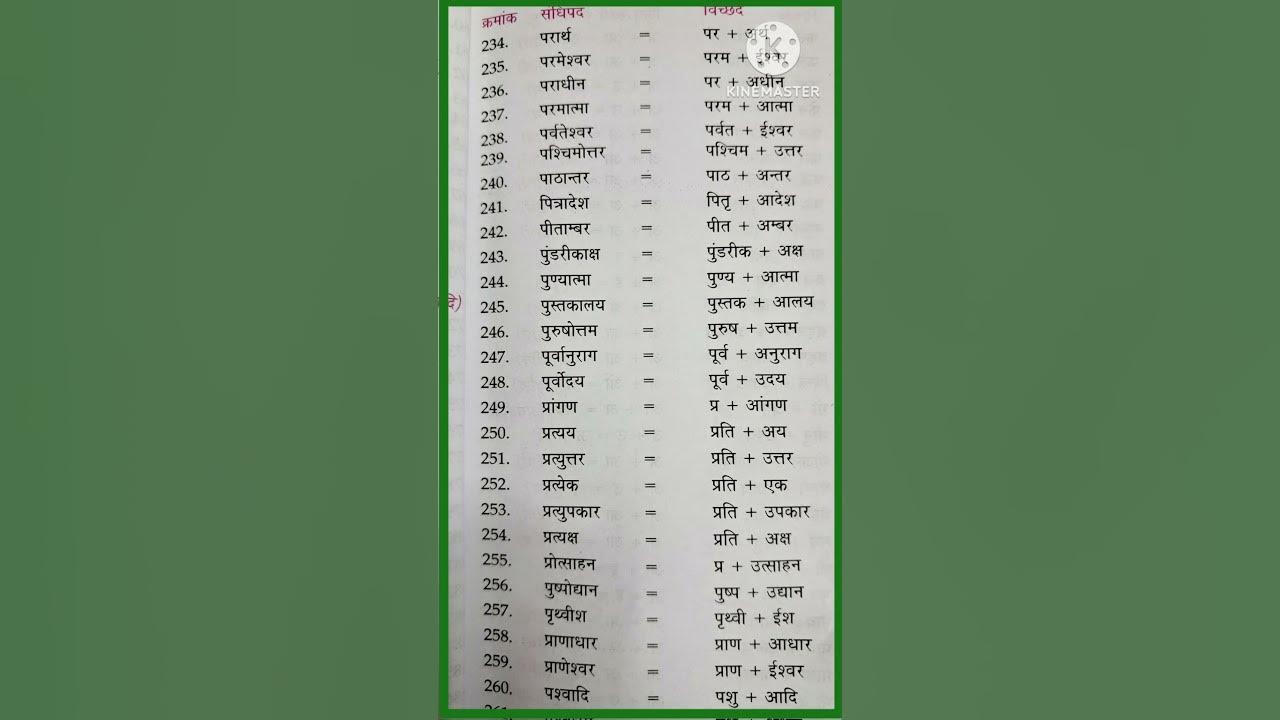 क्रमांक संधिपद विच्छेद
234. परार्थ = पर + अर्थ
235. परमेश्वर = परम + ईश्वर
236. पराधीन = पर + अधीन
KINEMASTER
237. परमात्मा = परम + आत्मा
238. पर्वतेश्वर = पर्वत + ईश्वर
239. पश्चिमोत्तर = पश्चिम + उत्तर
240. पाठान्तर = पाठ + अन्तर
241. पित्रादेश = पितृ + आदेश
242. पीताम्बर = पीत + अम्बर
243. पुंडरीकाक्ष = पुंडरीक + अक्ष
244. पुण्यात्मा = पुण्य + आत्मा
दि) 245. पुस्तकालय = पुस्तक + आलय
246. पुरुषोत्तम = पुरुष + उत्तम
247. पूर्वानुराग = पूर्व + अनुराग
248. पूर्वोदय = पूर्व + उदय
249. प्रांगण = प्र + आंगण
250. प्रत्यय = प्रति + अय
251. प्रत्युत्तर = प्रति + उत्तर
252. प्रत्येक = प्रति + एक
253. प्रत्युपकार = प्रति + उपकार
254. प्रत्यक्ष = प्रति + अक्ष
255. प्रोत्साहन = प्र + उत्साहन
256. पुष्पोद्यान = पुष्प + उद्यान
257. पृथ्वीश = पृथ्वी + ईश
258. प्राणाधार = प्राण + आधार
259. प्राणेश्वर = प्राण + ईश्वर
260. पश्वादि = पशु + आदि